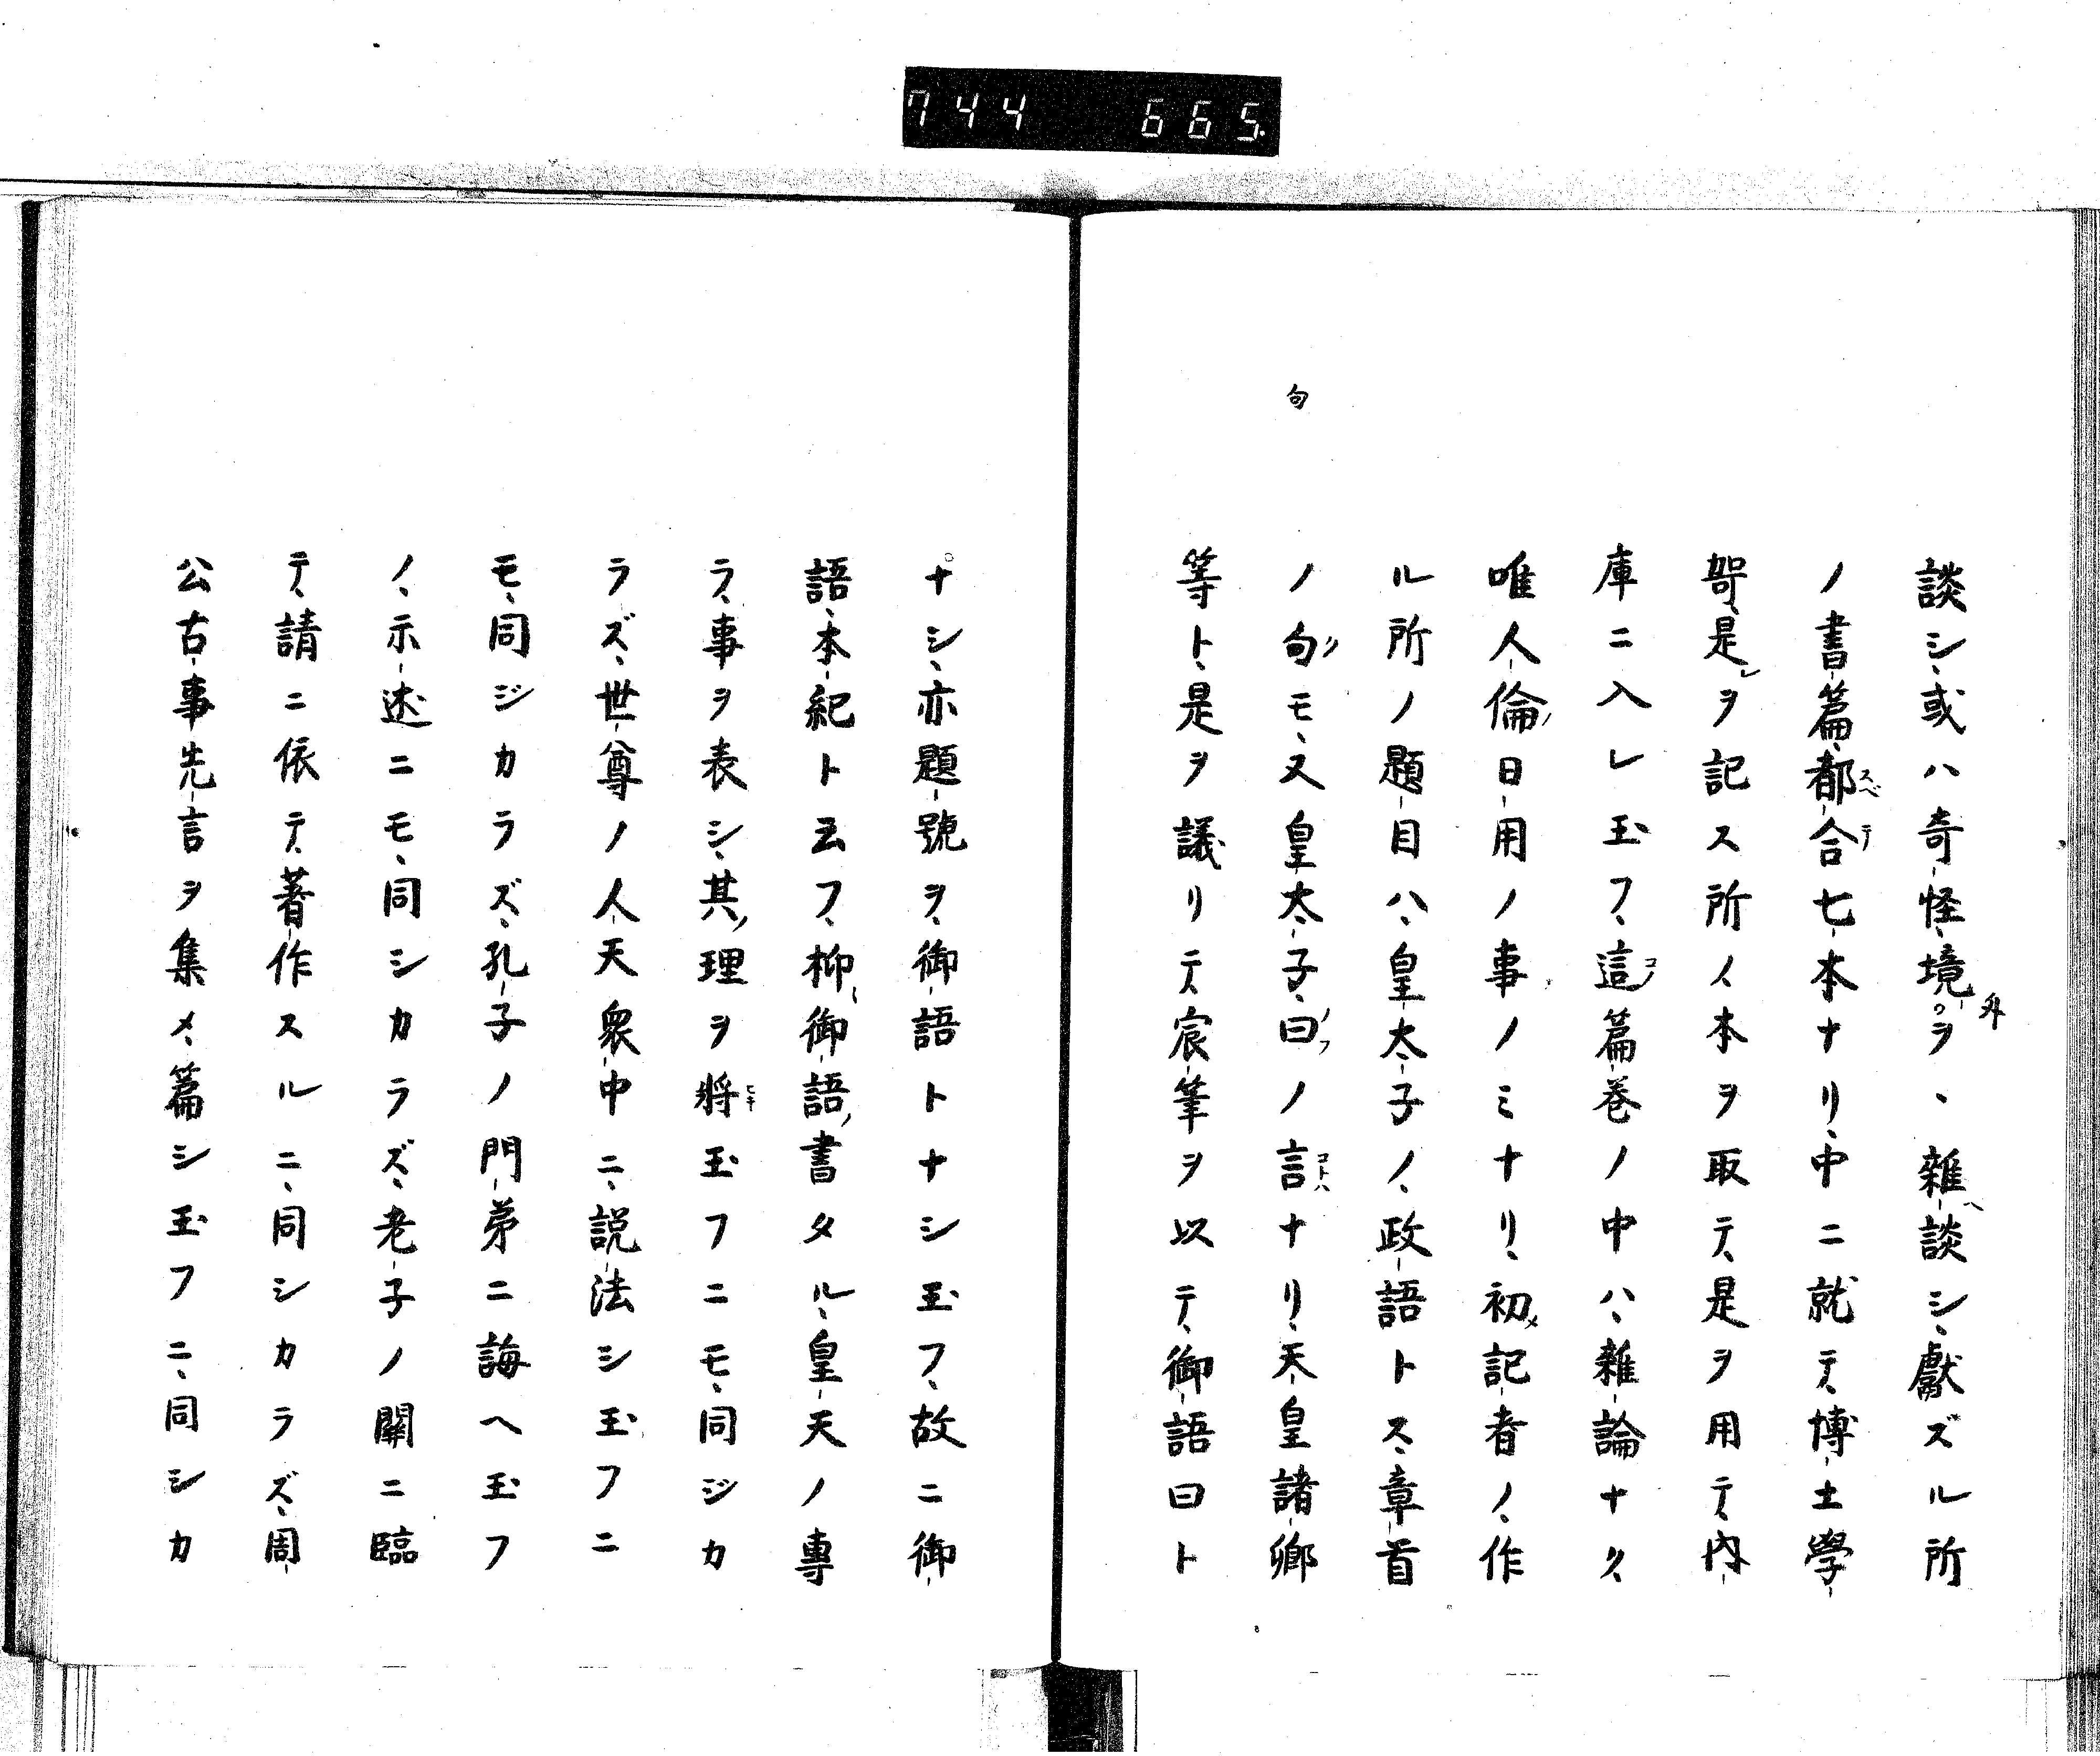 744 665.
談シ、或ハ奇怪境外ヲ、雜談シ、獻ズル所
ノ書篇、都合七本ナリ、中ニ就テ、博士學
哿、是ヲ記ス所ノ本ヲ取テ、是ヲ用テ、内
庫ニ入レ玉フ、這篇巻ノ中ハ、雜論ナク、
唯人倫日用ノ事ノミナリ、初記者ノ、作
ル所ノ題目ハ、皇太子ノ、政語トス、章首
句
ノ句モ、又皇太子、曰ノ言ナリ、天皇諸卿
等ト、是ヲ議リテ、宸筆ヲ以テ、御語曰ト
ナシ、亦題號ヲ、御語トナシ玉フ、故ニ御
語、本紀ト云フ、抑御語、書タル、皇天ノ專
ラ、事ヲ表シ、其理ヲ將玉フニモ、同ジカ
ラズ、世尊ノ人天衆中ニ、説法シ玉フニ
モ、同ジカラズ、孔子ノ門弟ニ誨ヘ玉フ
ノ、示述ニモ、同シカラズ、老子ノ關ニ臨
テ、請ニ依テ、著作スルニ、同シカラズ、周
公古事先言ヲ集メ、篇シ玉フニ、同シカ